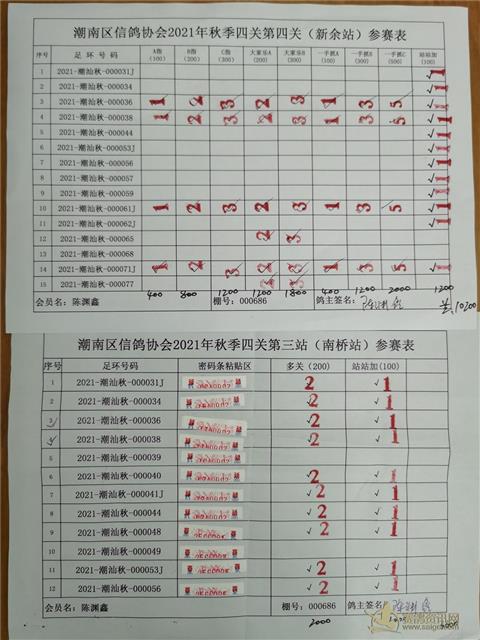 潮南区信鸽协会2021年秋季四关第四关（新余站）参赛表
序号 足环号码 A指(100) B指(200) C指(300) 大家乐A(200) 大家乐B(300) 一手抓A(100) 一手抓B(300) 一手抓C(500) 站站加(100)
1 2021-潮汕秋-000031J √ 1
2 2021-潮汕秋-000034 √ 1
3 2021-潮汕秋-000036 1 2 3 2 3 1 3 5 √ 1
4 2021-潮汕秋-000038 1 2 3 2 3 1 3 5 √ 1
5 2021-潮汕秋-000044 √ 1
6 2021-潮汕秋-000053J √ 1
7 2021-潮汕秋-000056 √ 1
8 2021-潮汕秋-000057 √ 1
9 2021-潮汕秋-000059 √ 1
10 2021-潮汕秋-000061J 1 2 3 2 3 1 3 5 √ 1
11 2021-潮汕秋-000062J √ 1
12 2021-潮汕秋-000065 2 3
13 2021-潮汕秋-000068
14 2021-潮汕秋-000071J 1 2 3 2 3 1 3 5 √ 1
15 2021-潮汕秋-000077 2 3
400 800 1200 1200 1800 400 1200 2000 1200
会员名：陈渊鑫 棚号：000686 鸽主签名： 10200
潮南区信鸽协会2021年秋季四关第三站（南桥站）参赛表
序号 足环号码 密码条粘贴区 多关(200) 站站加(100)
1 2021-潮汕秋-000031J √ 2 √ 1
2 2021-潮汕秋-000034 √ 2 √ 1
3 2021-潮汕秋-000036 √ 2 √ 1
4 2021-潮汕秋-000038 √ 2 √ 1
5 2021-潮汕秋-000039
6 2021-潮汕秋-000040 √ 2 √ 1
7 2021-潮汕秋-000041J √ 2 √ 1
8 2021-潮汕秋-000044 √ 2 √ 1
9 2021-潮汕秋-000048 √ 2 √ 1
10 2021-潮汕秋-000049
11 2021-潮汕秋-000053J √ 2 √ 1
12 2021-潮汕秋-000056 √ 2 √ 1
会员名：陈渊鑫 棚号：000686 鸽主签名：
2000